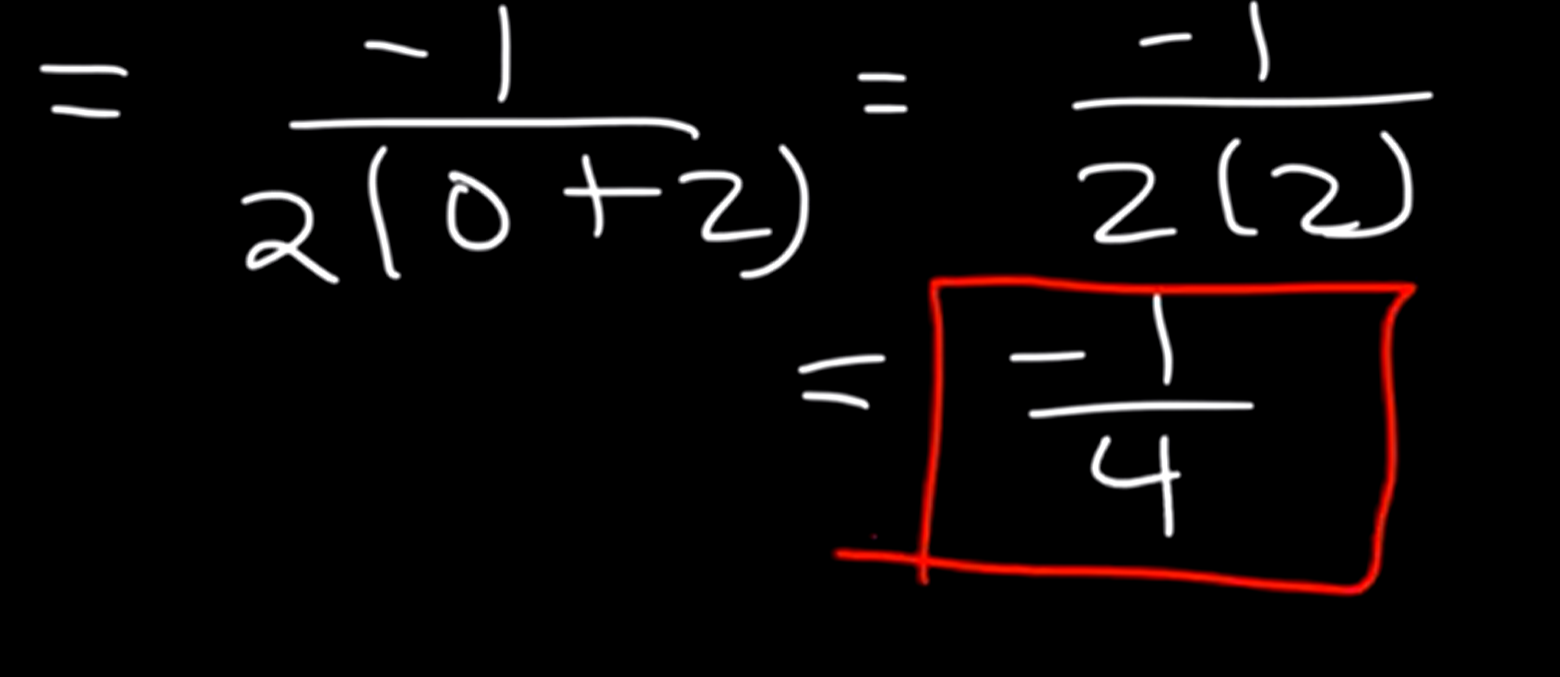 = -1/2(0+2) = -1/2(2)
= -1/4